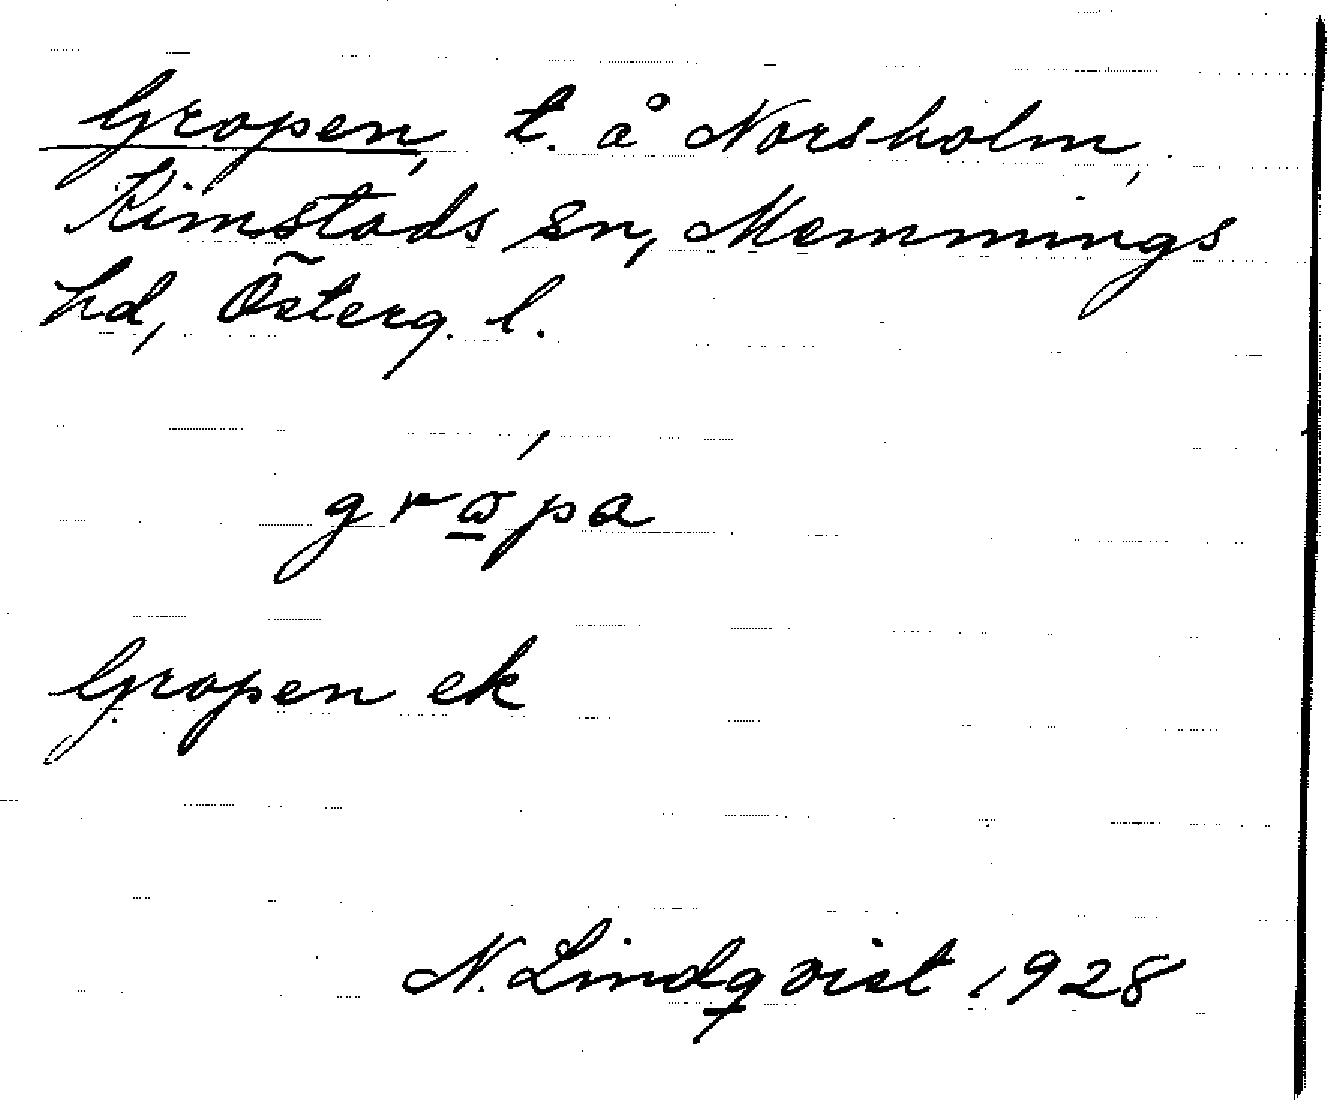 Gropen, t. å Norsholm,
Kimstads sn, Memmings
hd, Österg. l.
grώ̲pa
Gropen ek
N. Lindqvist 1928